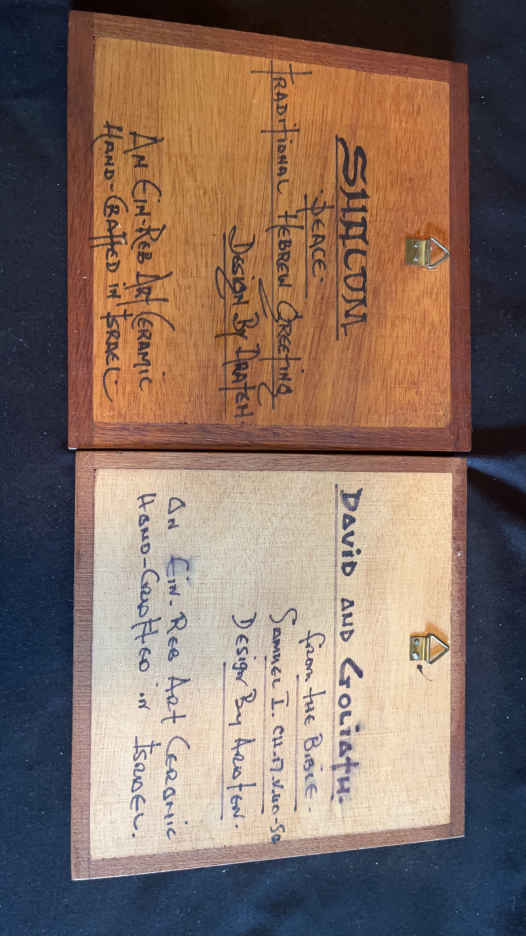 SHALOM.
PEACE.
TRADITIONAL HEBREW GREETING
DESIGN BY ARATEN.
AN EIN-REB ART CERAMIC
HAND-CRAFTED IN ISRAEL.
DAVID AND GOLIATH.
FROM THE BIBLE.
SAMUEL I. CH.17. V.40-50
DESIGN BY ARATEN.
AN EIN-REB ART CERAMIC
HAND-CRAFTED IN ISRAEL.